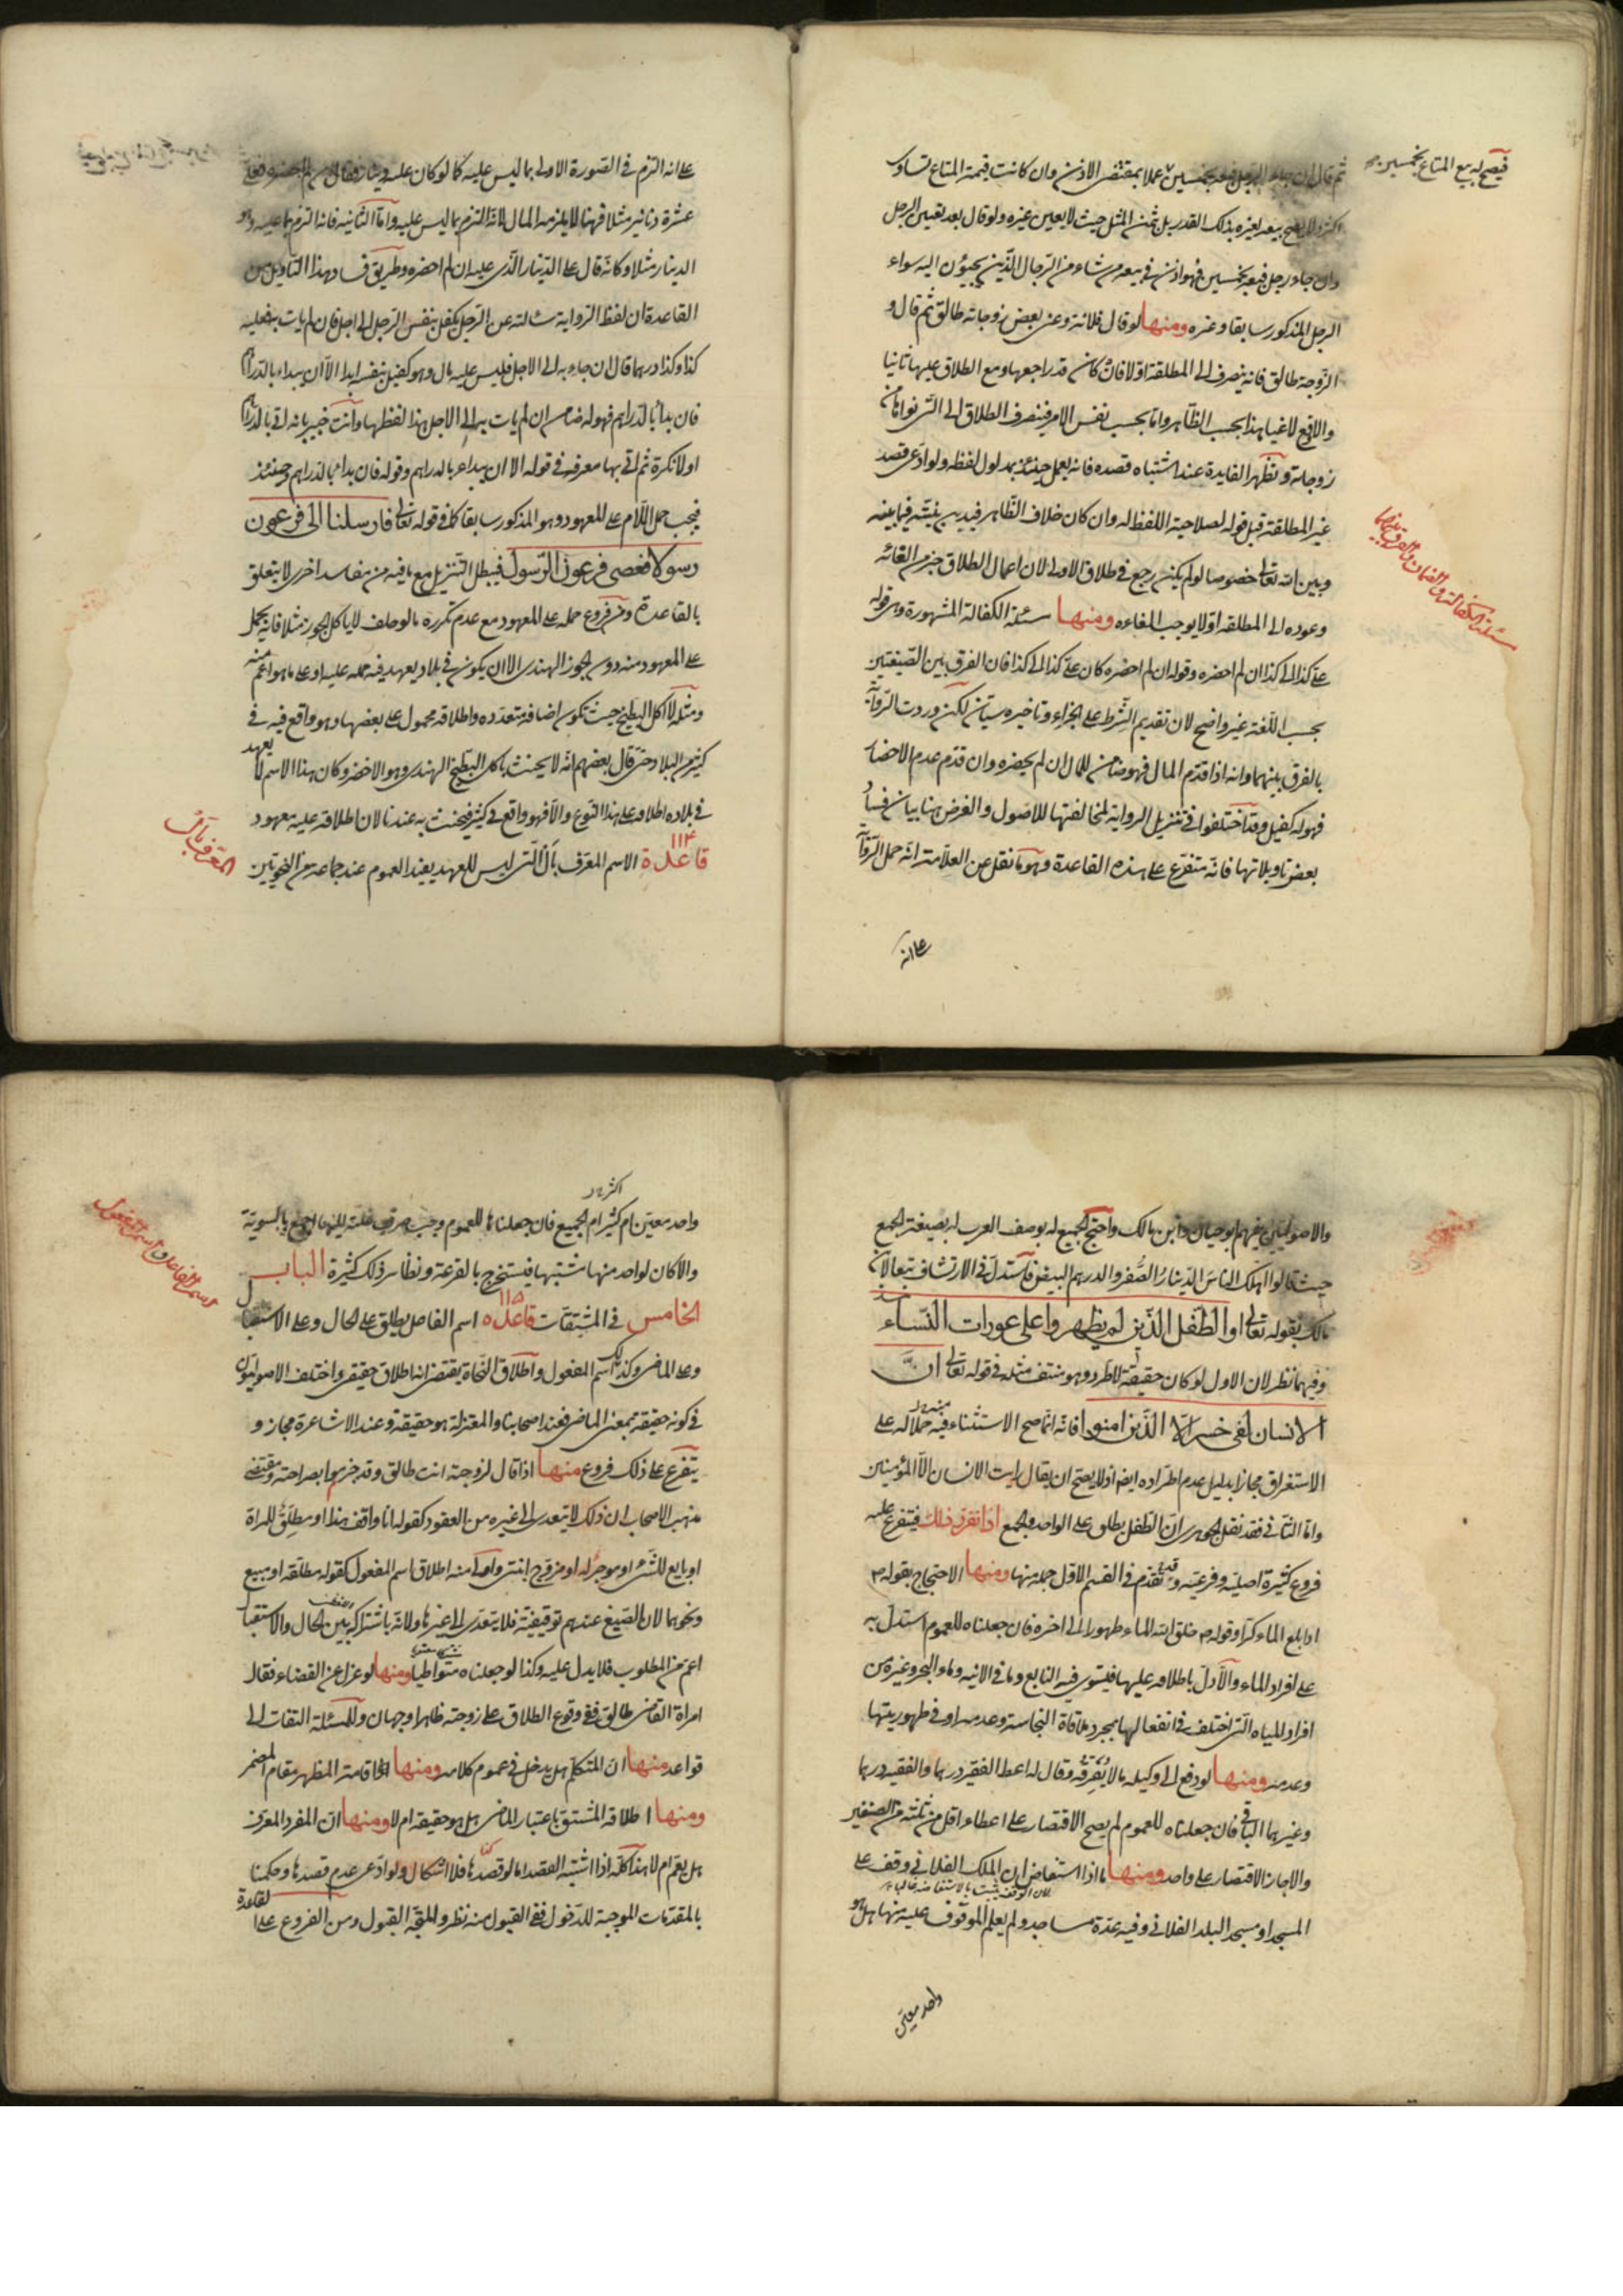 فيصح له بيع المتاع بخمسين
ثم قال ان جاء الرجل فبعه بخمسين عملا بمقتضى الاذن وان كانت قيمة المتاع تساوى
اكثر ولا يصح بيعه لغيره بذلك القدر بل بثمن المثل حيث لا يعين غيره ولو قال بعد تعيين الرجل
وان جاء رجل فبعه بخمسين فهو اذن فى بيعه من شاء من الرجال الذين يجيؤن اليه سواء
الرجل المذكور سابقا وغيره ومنها لو قال فلانة وعن بعض زوجاته طالق ثم قال و
الزوجة طالق فانه ينصرف الى المطلقة اولا فان كان قد راجعها وقع الطلاق عليها ثانيا
والا وقع لاغيا هذا بحسب الظاهر واما بحسب نفس الامر فينصرف الطلاق الى التى نواها من
زوجاته وتظهر الفايدة عند اشتباه قصده فانه يعمل حينئذ بمدلول لفظه ولو ادعى قصد
غير المطلقة قبل قوله لصلاحية اللفظ له وان كان خلاف الظاهر فيدين بنيته فيما بينه
وبين الله تعالى خصوصا لو لم يكن رجع فى طلاق الاولى لان اعمال الطلاق خير من الغائه
وعوده الى المطلقة اولا يوجب الغاءه ومنها مسئلة الكفالة المشهورة وهى قوله
على كذا الى كذا ان لم احضره وقوله ان لم احضره كان على كذا الى كذا فان الفرق بين الصيغتين
بحسب اللغة غير واضح لان تقديم الشرط على الجزاء وتاخيره سيان لكن وردت الرواية
بالفرق بينهما وانه اذا قدم المال فهو ضامن للمال ان لم يحضره وان قدم عدم الاحضار
فهو له كفيل وقد اختلفوا فى تنزيل الرواية لمخالفتها للاصول والغرض هنا بيان فساد
بعض تاويلاتها فانه متفرع على هذه القاعدة وهو ما نقل عن العلامة انه حمل الرواية
على انه
مسئلة الكفالة والضمان والفرق بينهما
على انه التزم فى الصورة الاولى بما ليس عليه كما لو كان عليه دينار فقال ان لم احضره فعلى
عشرة دنانير مثلا فهنا لا يلزمه المال لانه التزم بما ليس عليه واما الثانية فانه التزم بما عليه وهو
الدينار مثلا وكانه قال على الدينار الذى عليه ان لم احضره وطريق فساد هذا التاويل من
القاعدة ان لفظ الرواية سئلته عن الرجل يكفل بنفس الرجل الى اجل فان لم يات به فعليه
كذا وكذا درهما قال ان جاء به الى الاجل فليس عليه مال وهو كفيل بنفسه ابدا الا ان يبداء بالدراهم
فان بدأ بالدراهم فهو له ضامن ان لم يات به الى الاجل هذا لفظها وانت خبير بانه اتى بالدراهم
اولا نكرة ثم اتى بها معرفة فى قوله الا ان يبداء بالدراهم وقوله فان بداء بالدراهم وحينئذ
فيجب حمل اللام على المعهود وهو المذكور سابقا كما فى قوله تعالى فارسلنا الى فرعون
رسولا فعصى فرعون الرسول فيبطل التنزيل مع ما فيه من مفاسد اخرى لا يتعلق
بالقاعدة ومن فروع حمله على المعهود مع عدم تكرره ما لو حلف لا ياكل الجوز مثلا فانه يحمل
على المعهود منه دون الجوز الهندى الا ان يكون فى بلاد يعهد فيه حمله عليه او على ما هو اعم منه
ومثله لا آكل البطيخ حيث تكون اصنافه متعدده واطلاقه محمول على بعضها وهو واقع فيه فى
كثير من البلاد حتى قال بعضهم انه لا يحنث باكل البطيخ الهندى وهو الاخضر وكان هذا الاسم لا يعهد
فى بلاده اطلاقه على هذا النوع والا فهو واقع فى كثير فيحنث به عندنا لان اطلاقه عليه معهود
قاعدة ١١٤ الاسم المعرف بأل التى ليس للعهد يفيد العموم عند جماعة من النحويين
المعرف بأل
والاصوليين منهم ابو حيان وابن مالك واحتج الجميع له بوصف العرب له بصيغة الجمع
حيث قالوا اهلك الناس الدينار الصفر والدرهم البيض واستدل فى الارتشاف تبعا لابن
مالك بقوله تعالى او الطفل الذين لم يظهروا على عورات النساء
وفيهما نظر لان الاول لو كان حقيقة لاطرد وهو منتف مثله فى قوله تعالى ان
الانسان لفى خسر الا الذين امنوا فانه انما صح الاستثناء فيه حملا له على
الاستغراق مجازا بدليل عدم اطراده ايضا اذ لا يصح ان يقال رايت الانسان الا المؤمنين
واما الثانى فقد نقل الجوهرى ان الطفل يطلق على الواحد والجمع اذا تقرر ذلك فيتفرع عليه
فروع كثيرة اصلية وفرعية وقد تقدم فى القسم الاول جملة منها ومنها الاحتجاج بقوله
اذا بلغ الماء كرا وقوله خلق الله الماء طهورا الى اخره فان جعلناه للعموم استدل به
على افراد الماء والا دل باطلاقه عليها فيستوى فيه النابع وما فى الانيه وماء البحر وغيره من
افراد المياه التى اختلف فى انفعالها بمجرد ملاقاة النجاسة وعدمه او فى طهوريتها
وعدمه ومنها لو دفع الى وكيله مالا يفرقه وقال له اعط الفقير درهما والفقيه درهما
وغيرهما الباقى فان جعلناه للعموم لم يصح الاقتصار على اعطاء اقل من ثلثة من الصنفين
والا جاز الاقتصار على واحد ومنها ما اذا استفاض ان الملك الفلانى وقف على
لان الوقف يثبت بالاستفاضة غالبا
المسجد او مسجد البلد الفلانى وفيه عدة مساجد ولم يعلم الموقوف عليه منها هل هو
واحد معين
اكثر
واحد معين ام كثير ام الجميع فان جعلناه للعموم وجب صرف غلته للجميع بالسوية
والا كان لواحد منها مشتبها فيستخرج بالقرعة ونظائر ذلك كثيرة الباب
الخامس فى المشتقات قاعدة ١١٥ اسم الفاعل يطلق على الحال وعلى الاستقبال
وعلى الماضى وكذلك اسم المفعول واطلاق النحاة يقتضى انه اطلاق حقيقى واختلف الاصوليون
فى كونه حقيقة بمعنى الماضى فعند اصحابنا والمعتزلة هو حقيقة وعند الاشاعرة مجاز و
يتفرع على ذلك فروع منها اذا قال لزوجته انت طالق وقد جزموا بصراحته ومقتضى
مذهب الاصحاب ان ذلك لا يتعدى الى غيره من العقود كقوله انا واقف هذا او مطلق للمراة
او بايع للشئ او موجر له او مزوج ابنتى واولى منه اطلاق اسم المفعول كقوله مطلقه او مبيع
ونحوهما لان الصيغ عندهم توقيفية فلا يتعدى الى غيرها ولانه باشتراكه بين الحال والاستقبال
اعم من المطلوب فلا يدل عليه وكذا لو جعلناه متواطيا ومنها لو عزل عن القضاء فقال
امراة القاضى طالق ففى وقوع الطلاق على زوجته ظاهرا وجهان وللمسئلة التفات الى
قواعد منها ان المتكلم هل يدخل فى عموم كلامه ومنها اقامة المظهر مقام المضمر
ومنها اطلاق المشتق باعتبار الماضى هل هو حقيقة ام لا ومنها ان المفرد المعرف
هل يعم ام لا هذا كله اذا اشتبه القصد اما لو قصدها فلا اشكال ولو ادعى عدم قصدها وحكمنا
بالمقدمات الموجبة للدخول ففى القبول منه نظر والمتجه القبول ومن الفروع على القاعدة
اسم الفاعل واسم المفعول